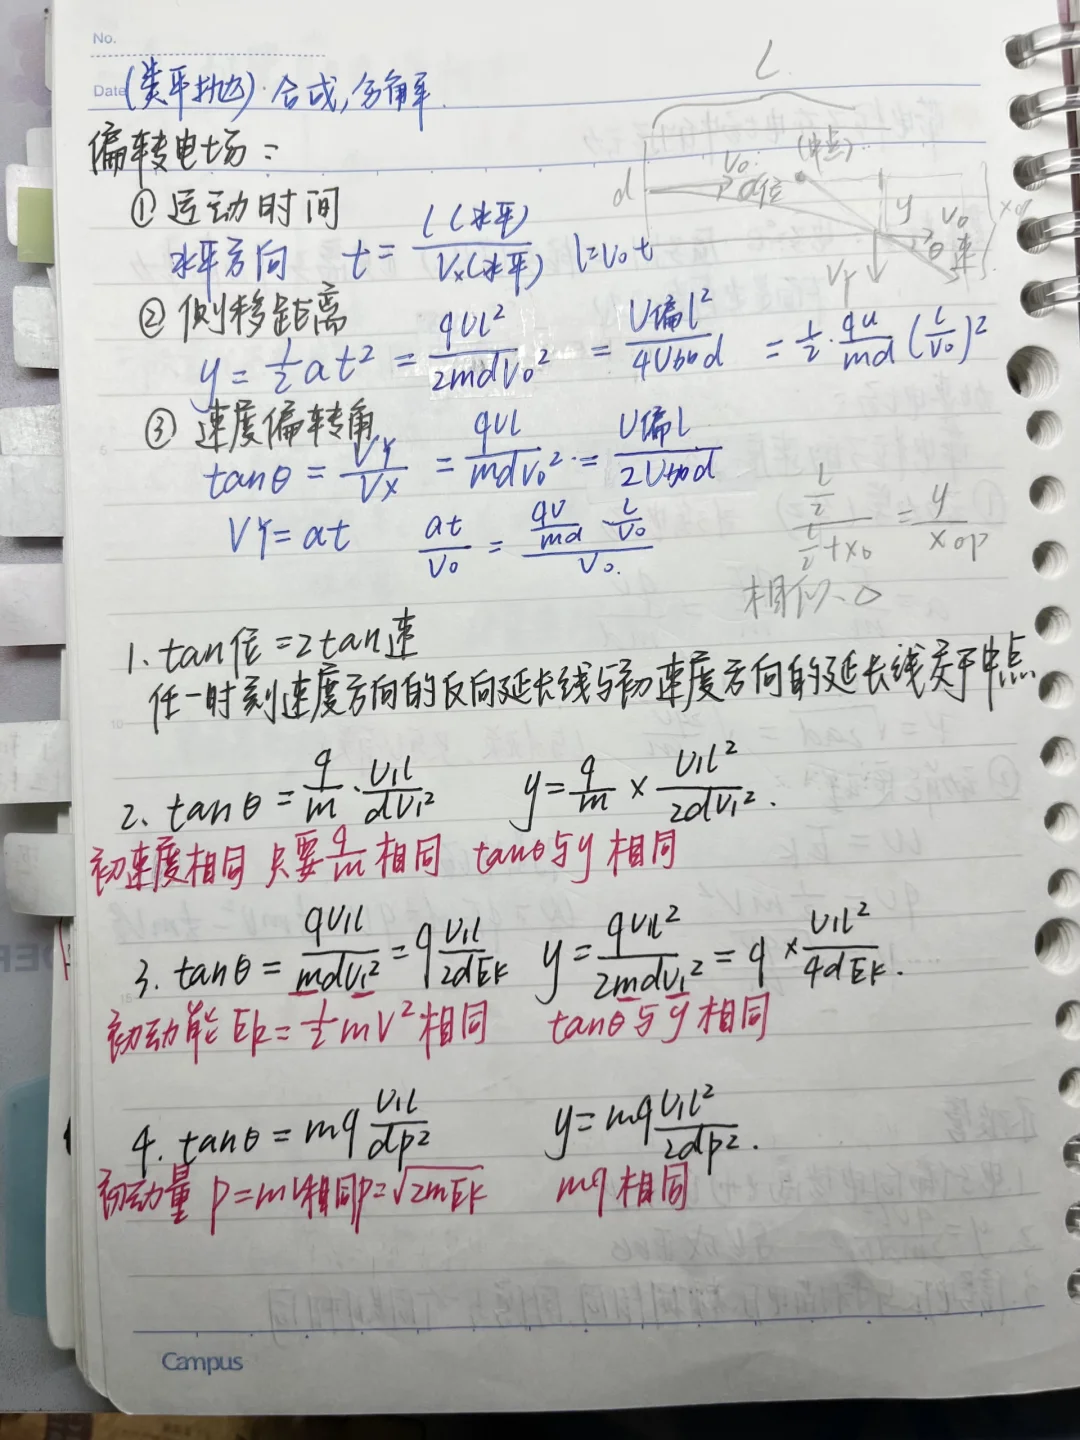 No.
Date (类平抛) 合成,分解
L
偏转电场:
(中点)
V₀
d
位
y
V₀
θ 速
Vy
① 运动时间
水平方向 t = l(水平)/Vx(水平) l=V₀t
② 侧移距离
y = 1/2 at² = qUl²/2mdV₀² = U偏l²/4U加d = 1/2 · qu/md (L/V₀)²
③ 速度偏转角
tanθ = Vy/Vx = qUl/mdV₀² = U偏l/2U加d
Vy = at at/V₀ = (qU/md · L/V₀)/V₀
(L/2)/(L/2+x₀) = y/xop
相似△
1. tan位 = 2tan速
任一时刻速度方向的反向延长线与初速度方向的延长线交于中点
2. tanθ = q/m · U₁l/dV₁² y = q/m × U₁l²/2dV₁².
初速度相同 只要 q/m 相同 tanθ与y 相同
3. tanθ = qU₁l/mdV₁² = q U₁l/2dEk y = qU₁l²/2mdV₁² = q × U₁l²/4dEk.
初动能 Ek = 1/2 mV² 相同 tanθ与y相同
4. tanθ = mq U₁l/dp² y = mq U₁l²/2dp².
初动量 P=mv相同 P=√2mEk mq相同
Campus